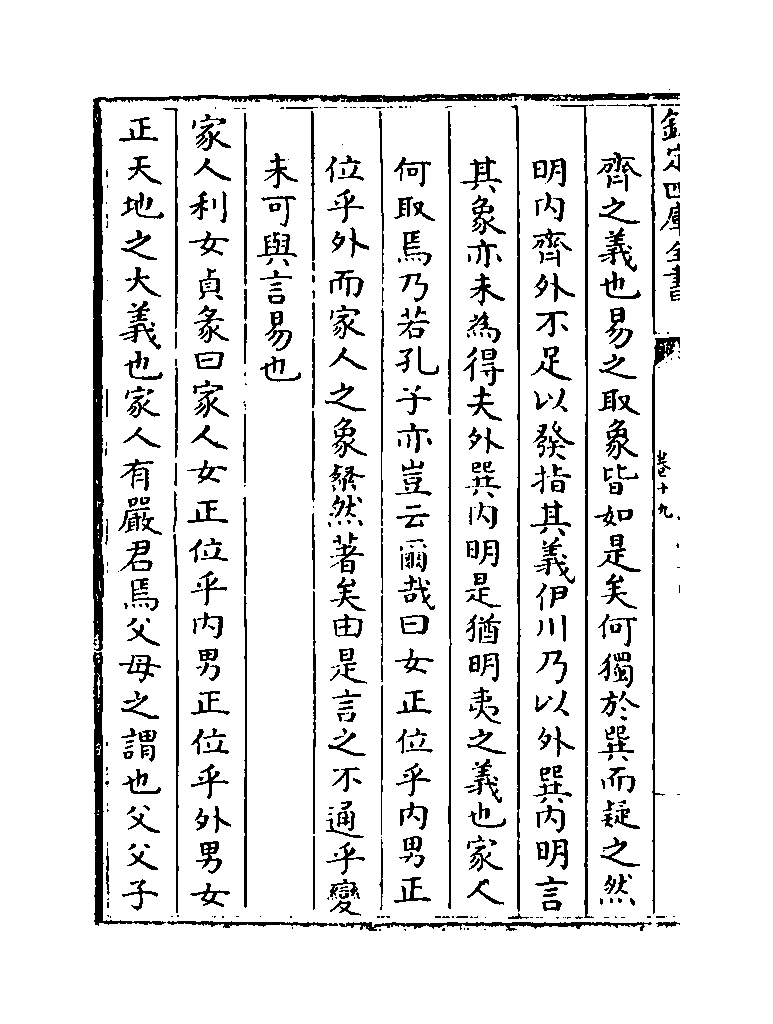 欽定四庫全書
卷十九
齊之義也易之取象皆如是矣何獨於巽而疑之然
明内齊外不足以發指其義伊川乃以外巽内明言
其象亦未為得夫外巽内明是猶明夷之義也家人
何取焉乃若孔子亦豈云爾哉曰女正位乎内男正
位乎外而家人之象粲然著矣由是言之不通乎變
未可與言易也
家人利女貞彖曰家人女正位乎内男正位乎外男女
正天地之大義也家人有嚴君焉父母之謂也父父子